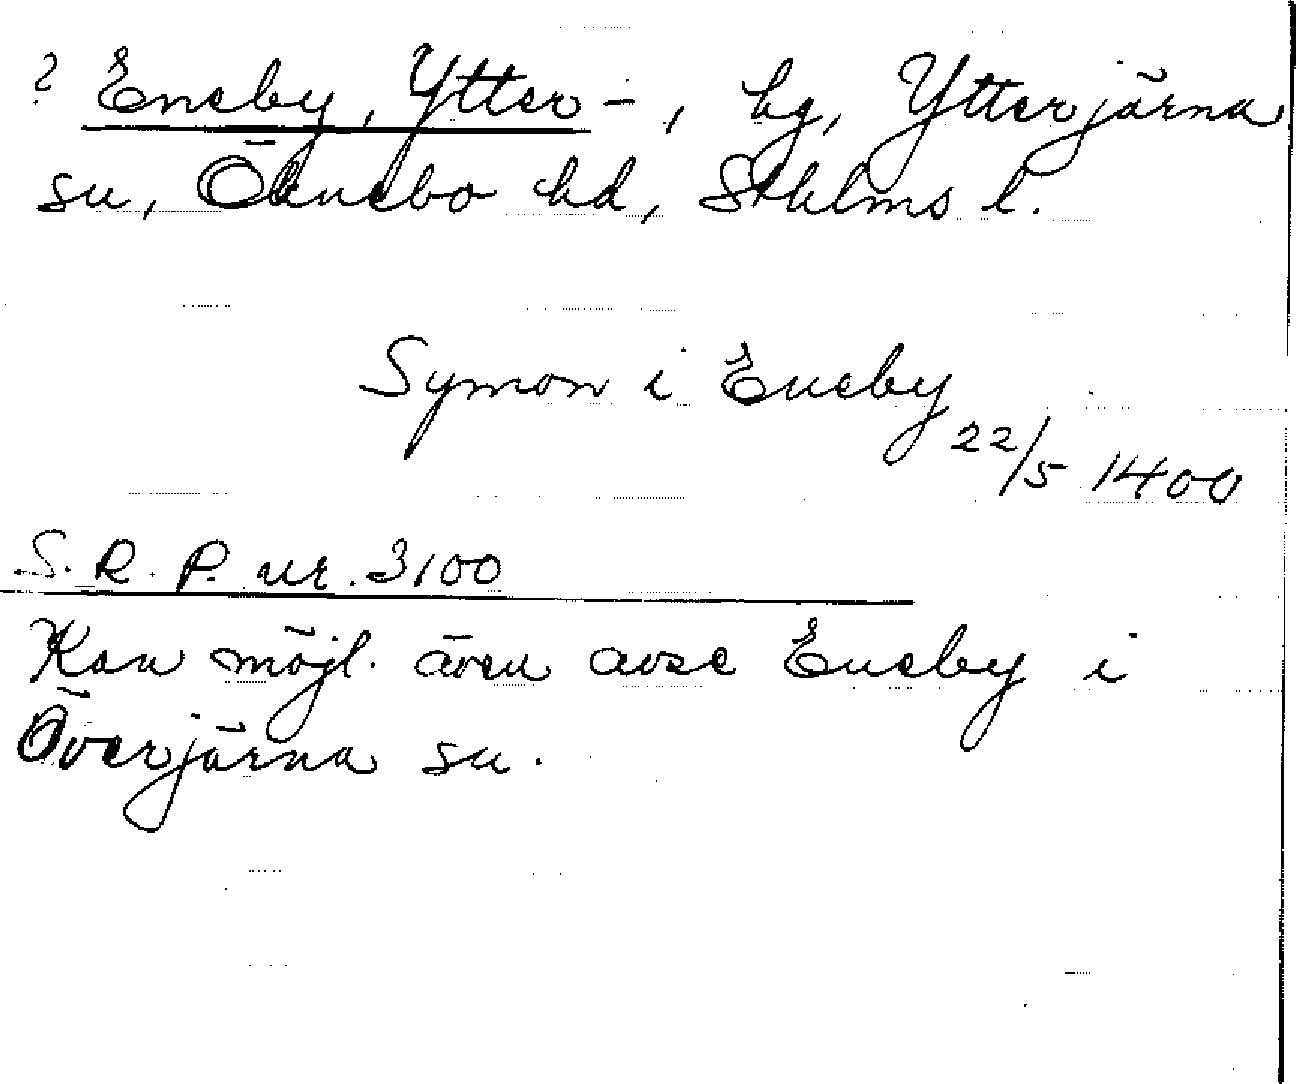 ? Eneby, Ytter-, hg, Ytterjärna
sn, Öknebo hd, Sthlms l.
Symon i Eneby
22/5 1400
S.R.P. nr. 3100
Kan möjl. även avse Eneby i
Överjärna sn.